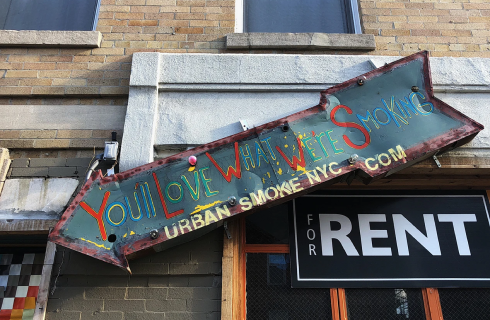 You'll Love What We're Smoking
URBAN SMOKE NYC.COM
FOR
RENT